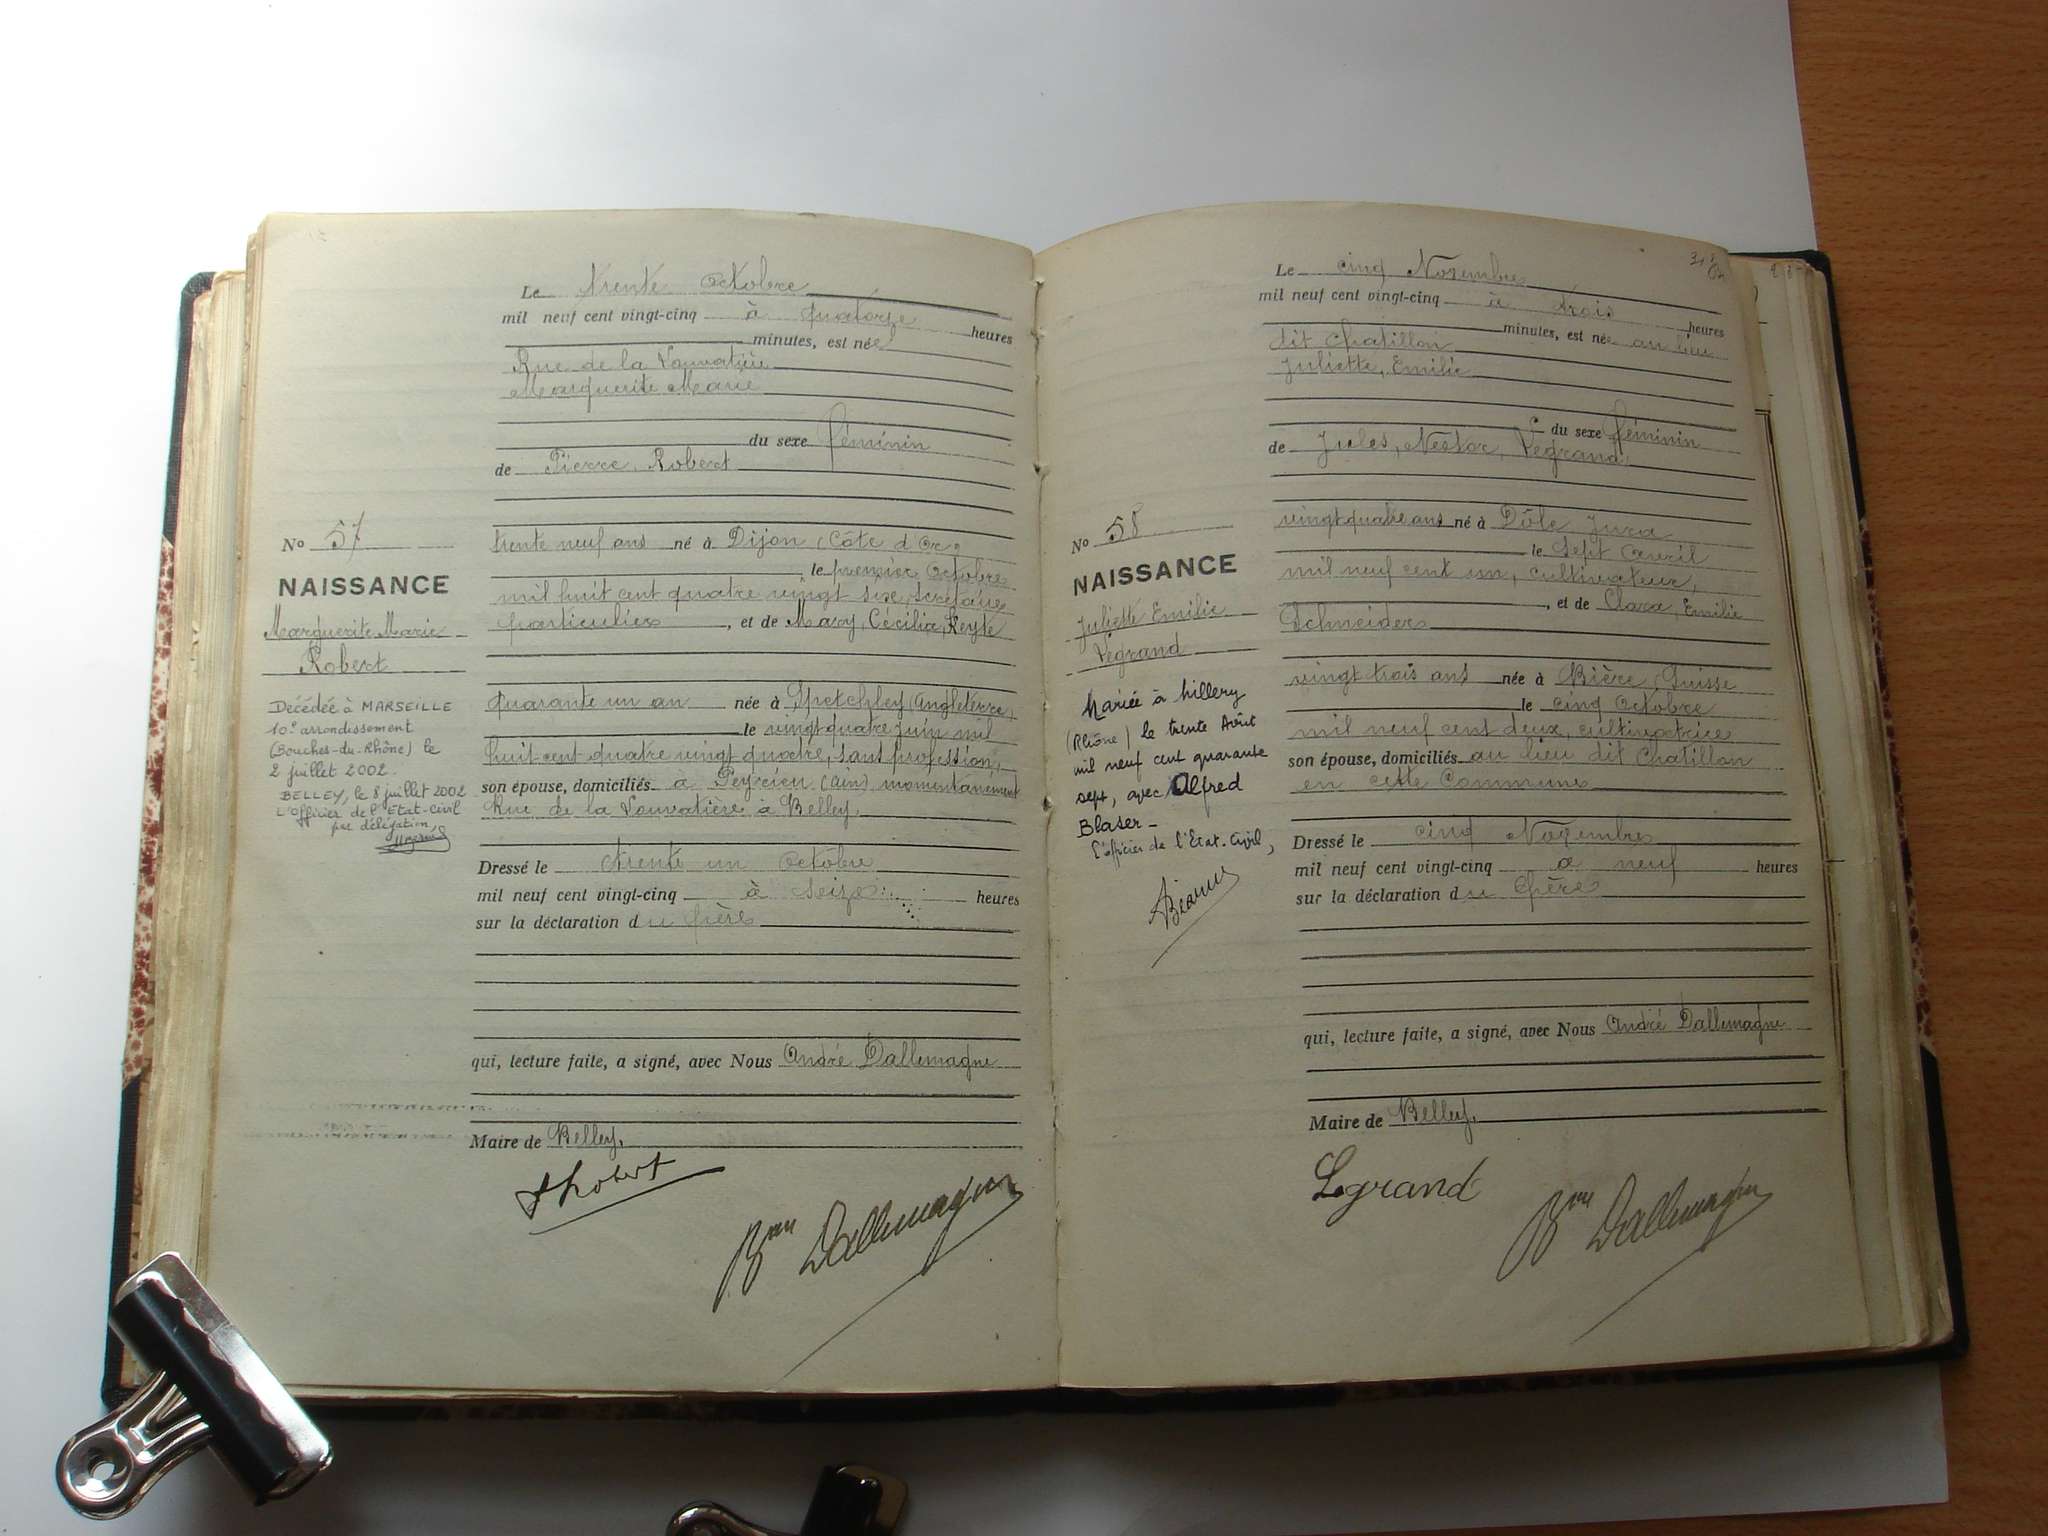 Le trente Octobre
mil neuf cent vingt-cinq à quatorze heures
minutes, est née
Rue de la Louvatière
Marguerite Marie
du sexe féminin
de Pierre, Robert
trente neuf ans né à Dijon (Côte d'Or)
le premier Octobre
mil huit cent quatre vingt six, Secrétaire
particulier, et de Mary, Cécilia, Keyte
quarante un an née à Spetchley (Angleterre)
le vingt quatre juin mil
huit cent quatre vingt quatre, sans profession,
son épouse, domiciliés à Peyrieu (Ain) momentanément
Rue de la Louvatière à Belley.
Dressé le trente un Octobre
mil neuf cent vingt-cinq à seize heures
sur la déclaration du père
qui, lecture faite, a signé, avec Nous André Dallemagne
Maire de Belley.
Robert
Bon Dallemagne
No 57
NAISSANCE
Marguerite Marie
Robert
Décédée à MARSEILLE
10e arrondissement
(Bouches-du-Rhône) le
2 juillet 2002.
BELLEY, le 8 juillet 2002
L'Officier de l'Etat-Civil
par délégation,
Le cinq Novembre
mil neuf cent vingt-cinq à trois heures
minutes, est née au lieu
dit Chatillon
Juliette, Emilie
du sexe féminin
de Jules, Nestor, Legrand,
vingt quatre ans né à Dôle Jura
le Sept Avril
mil neuf cent un, cultivateur,
, et de Clara, Emilie
Schneider
vingt trois ans née à Bière, Suisse
le cinq Octobre
mil neuf cent deux, cultivatrice
son épouse, domiciliés au lieu dit Chatillon
en cette Commune
Dressé le cinq Novembre
mil neuf cent vingt-cinq à neuf heures
sur la déclaration du père
qui, lecture faite, a signé, avec Nous André Dallemagne
Maire de Belley.
Legrand
Bon Dallemagne
No 58
NAISSANCE
Juliette Emilie
Legrand
Mariée à Millery
(Rhône) le trente Août
mil neuf cent quarante
sept, avec Alfred
Blaser -
L'officier de l'Etat-Civil,